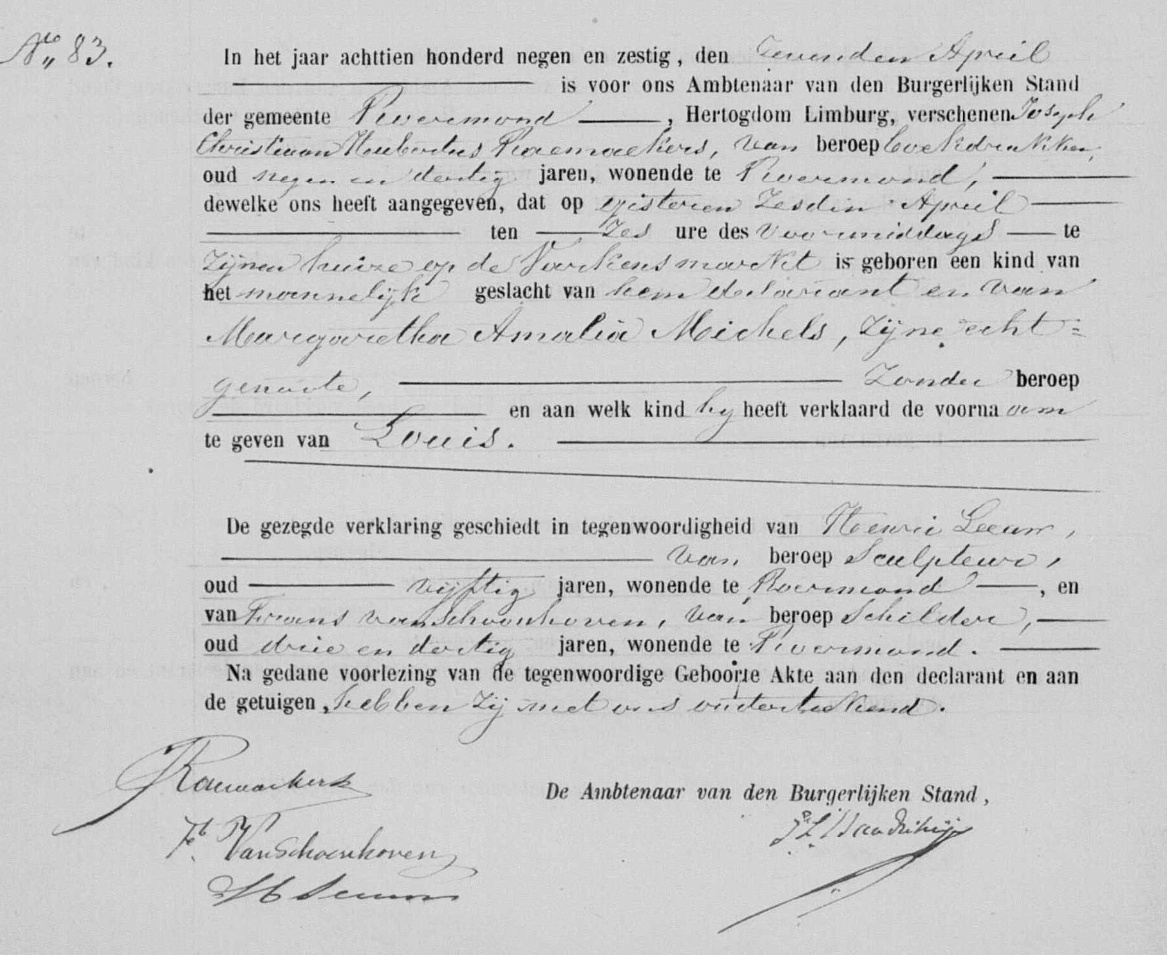 No 83.
In het jaar achttien honderd negen en zestig, den Zevenden April
is voor ons Ambtenaar van den Burgerlijken Stand
der gemeente Roermond, Hertogdom Limburg, verschenen Joseph
Christiaan Hubertus Raemaekers, van beroep boekdrukker,
oud negen en dertig jaren, wonende te Roermond,
dewelke ons heeft aangegeven, dat op gisteren Zesden April
ten Zes ure des Voormiddags te
Zijnen huize op de Varkensmarkt is geboren een kind van
het mannelijk geslacht van hem declarant en van
Margaretha Amalia Michels, Zijne echt=
genoote, Zonder beroep
en aan welk kind hy heeft verklaard de voornaam
te geven van Louis.
De gezegde verklaring geschiedt in tegenwoordigheid van Henri Leeuw,
van beroep Sculpteur,
oud vijftig jaren, wonende te Roermond, en
van Frans van Schoonhoven, van beroep Schilder,
oud drie en dertig jaren, wonende te Roermond.
Na gedane voorlezing van de tegenwoordige Geboorte Akte aan den declarant en aan
de getuigen hebben Zij met ons onderteekend.
JRaemaekers
De Ambtenaar van den Burgerlijken Stand,
Fs. VanSchoonhoven
H Leeuw